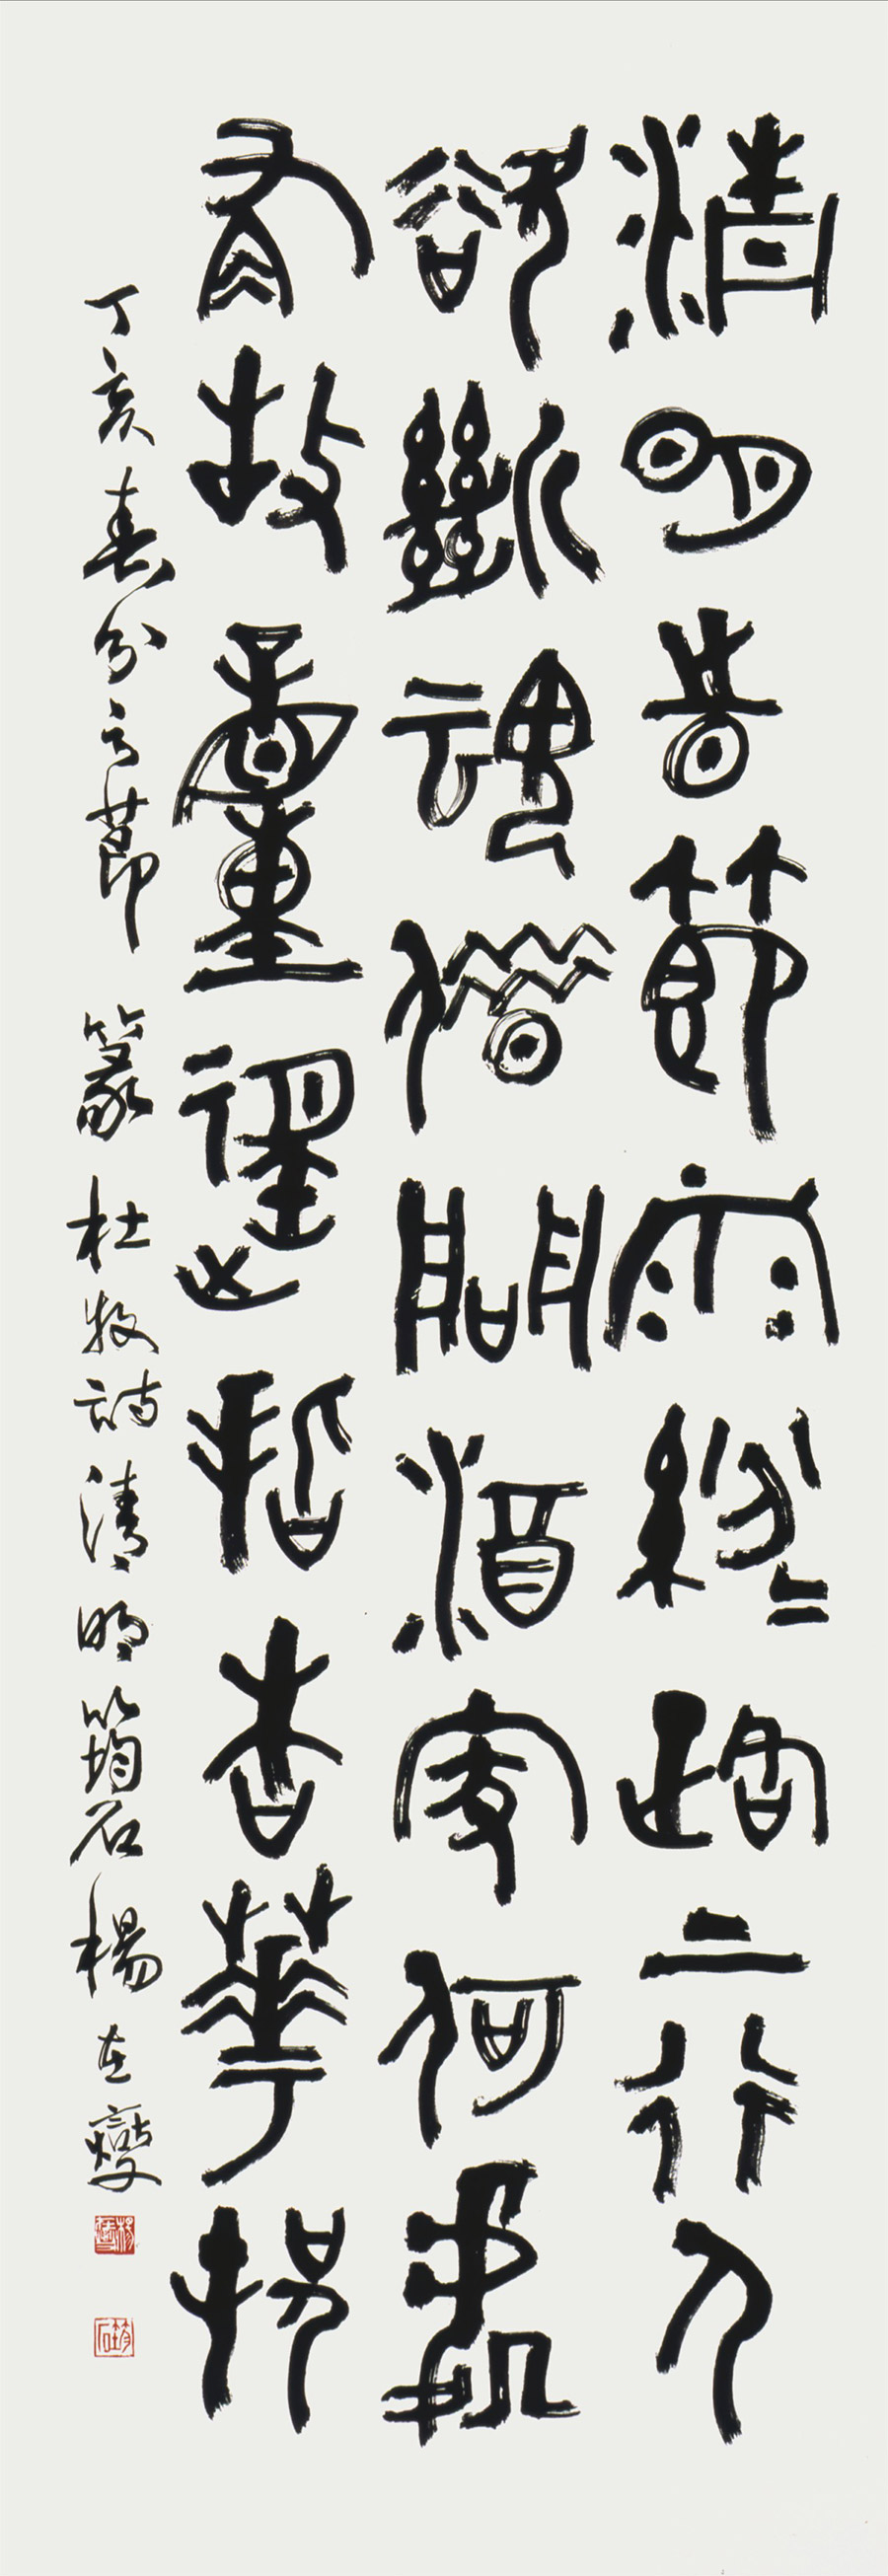 清明時節雨紛〻路上行人
欲斷魂借問酒家何處
有牧童遙指杏華邨
丁亥春分之節 篆杜牧詩清明 筠石楊在燮
筠石